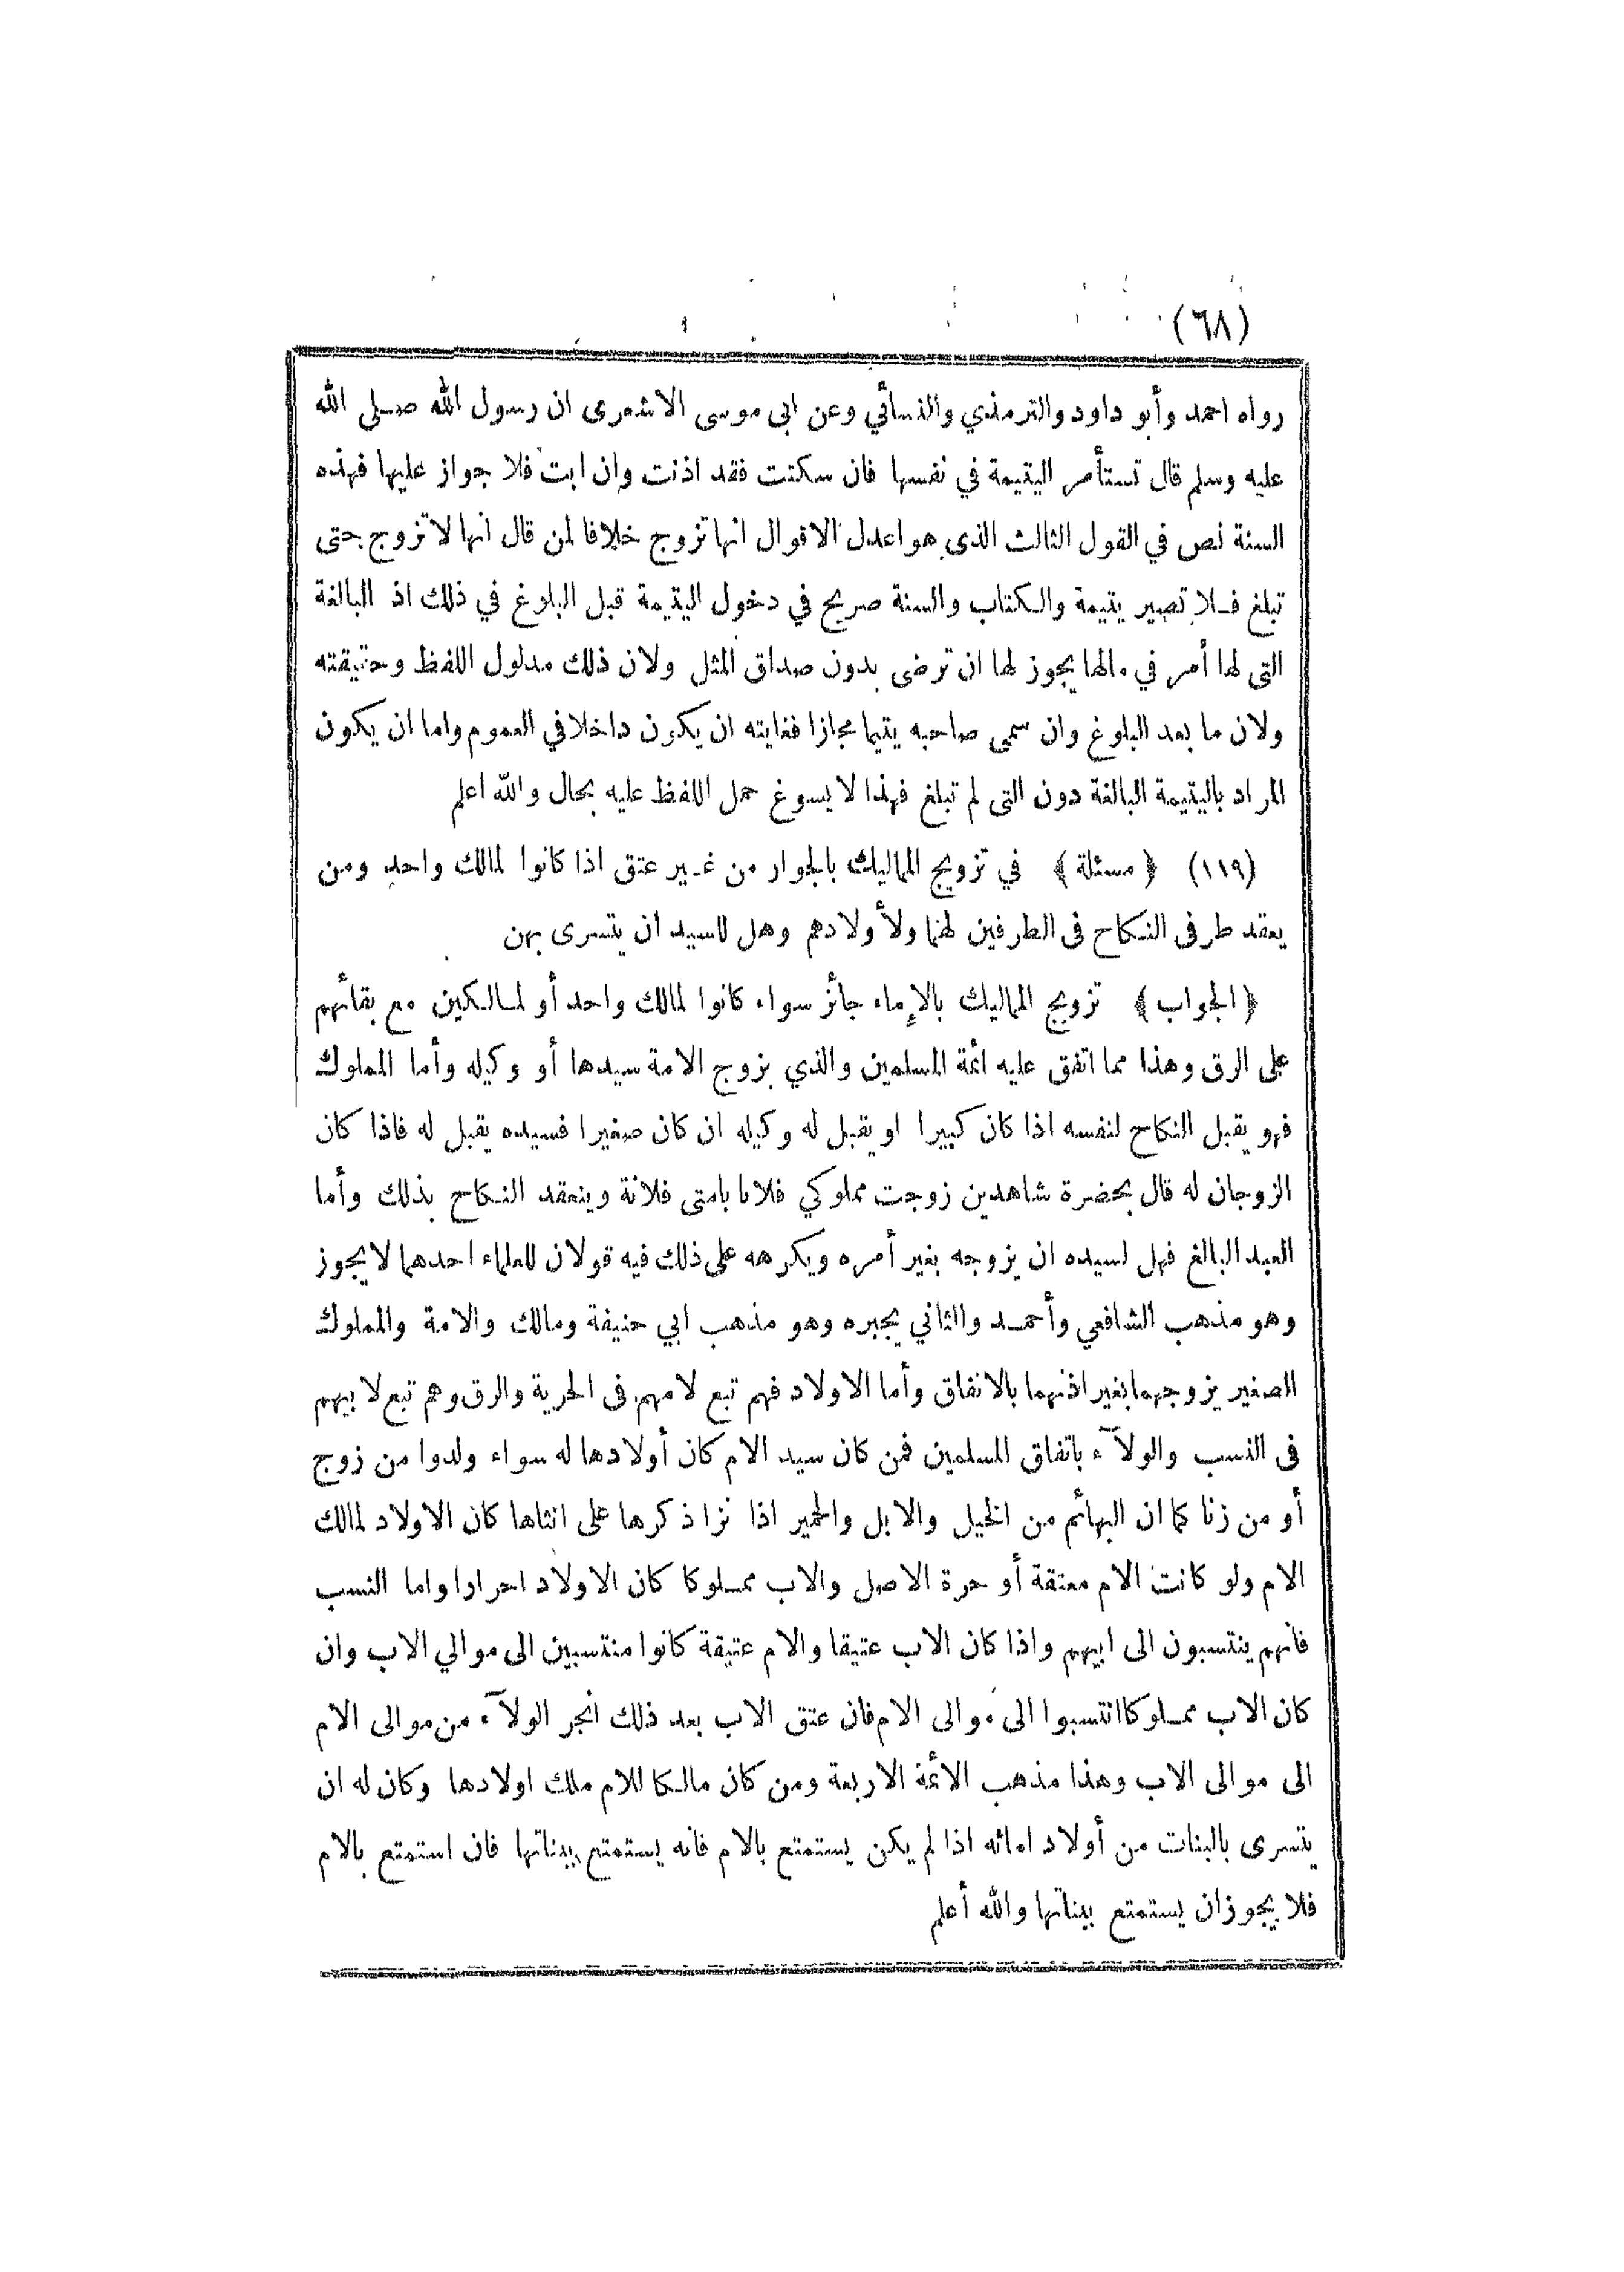 (٦٨)
رواه احمد وأبو داود والترمذي والنسائي وعن ابى موسى الاشعرى ان رسول الله صلى الله
عليه وسلم قال تستأمر اليتيمة في نفسها فان سكتت فقد اذنت وان ابت فلا جواز عليها فهذه
السنة نص في القول الثالث الذى هو اعدل الاقوال انها تزوج خلافا لمن قال انها لا تزوج حتى
تبلغ فلا تصير يتيمة والكتاب والسنة صريح في دخول اليتيمة قبل البلوغ في ذلك اذ البالغة
التى لها أمر في مالها يجوز لها ان ترضى بدون صداق المثل ولان ذلك مدلول اللفظ وحقيقته
ولان ما بعد البلوغ وان سمى صاحبه يتيما مجازا فغايته ان يكون داخلا في العموم واما ان يكون
المراد باليتيمة البالغة دون التى لم تبلغ فهذا لا يسوغ حمل اللفظ عليه بحال والله اعلم
(١١٩) ﴿مسئلة﴾ في تزويج المماليك بالجوار من غير عتق اذا كانوا لمالك واحد ومن
يعقد طرفى النكاح فى الطرفين لهما ولأولادهم وهل للسيد ان يتسرى بهن
﴿الجواب﴾ تزويج المماليك بالإماء جائز سواء كانوا لمالك واحد أو لمالكين مع بقائهم
على الرق وهذا مما اتفق عليه ائمة المسلمين والذي يزوج الامة سيدها أو وكيله وأما المملوك
فهو يقبل النكاح لنفسه اذا كان كبيرا او يقبل له وكيله ان كان صغيرا فسيده يقبل له فاذا كان
الزوجان له قال بحضرة شاهدين زوجت مملوكي فلانا بامتى فلانة وينعقد النكاح بذلك وأما
العبد البالغ فهل لسيده ان يزوجه بغير أمره ويكرهه على ذلك فيه قولان للعلماء احدهما لا يجوز
وهو مذهب الشافعي وأحمد والثاني يجبره وهو مذهب ابي حنيفة ومالك والامة والمملوك
الصغير يزوجهما بغير اذنهما بالاتفاق وأما الاولاد فهم تبع لامهم فى الحرية والرق وهم تبع لابيهم
فى النسب والولآء باتفاق المسلمين فمن كان سيد الام كان أولادها له سواء ولدوا من زوج
أو من زنا كما ان البهائم من الخيل والابل والحمير اذا نزا ذكرها على انثاها كان الاولاد لمالك
الام ولو كانت الام معتقة أو حرة الاصل والاب مملوكا كان الاولاد احرارا واما النسب
فانهم ينتسبون الى ابيهم واذا كان الاب عتيقا والام عتيقة كانوا منتسبين الى موالي الاب وان
كان الاب مملوكا انتسبوا الى موالى الام فان عتق الاب بعد ذلك انجر الولآء من موالى الام
الى موالى الاب وهذا مذهب الائمة الاربعة ومن كان مالكا للام ملك اولادها وكان له ان
يتسرى بالبنات من أولاد امائه اذا لم يكن يستمتع بالام فانه يستمتع ببناتها فان استمتع بالام
فلا يجوز ان يستمتع ببناتها والله أعلم